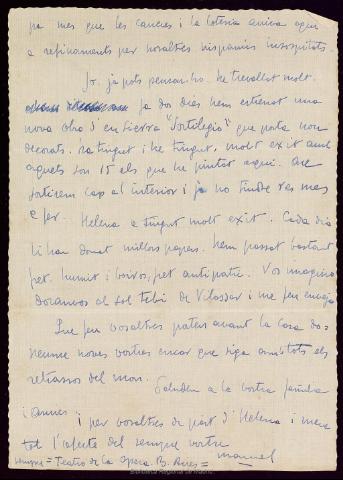 pa mes que les cançons i la loteria arriva aqui
a refinaments per nosaltres hispànics insospitats.
Jo, ja pots pensar-ho. he trevallat molt.
fa dos dias hem estrenat una
nova obra d'en Sierra "Sortilegio" que porta nou
decorats. ha tingut i he tingut, molt exit amb
aquets son 15 els que he pintat aqui. Are
sortirem cap al interior i ja no tindré res mes
a fer. Helena a tingut molt exit. Cada dia
li han donat millors papers. hem passat bastant
fret. humit i boiros, fret antipatic. Vos imagino
dorannos al sol tebi de Vilassar i me feu enveja
Que feu vosaltres pateu avant la casa do-
neume noves vostres encar que siga amb tots els
retrassos del mon.
Saludeu a la vostra familia
i amics i per vosaltres de part d'Helena i meva
tot l'afecte del sempre vostre
manuel
sempre = Teatro de la Opera. B. Aires =